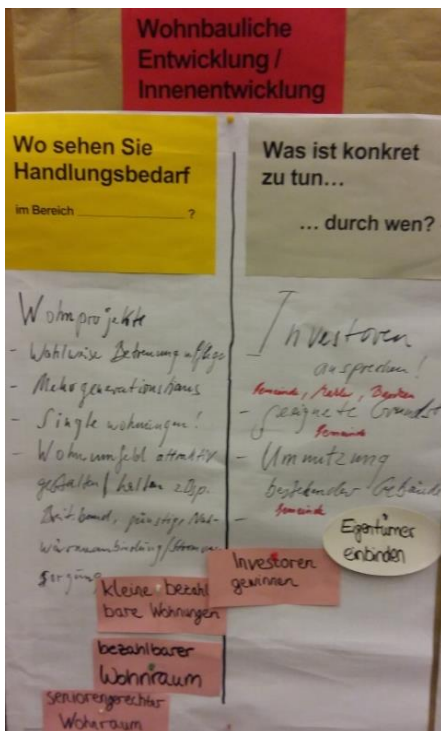 Wohnbauliche
Entwicklung /
Innenentwicklung
Wo sehen Sie
Handlungsbedarf
im Bereich ____________ ?
Wohnprojekte
- Wahlweise Betreuung u Pflege
- Mehrgenerationshaus
- Singlewohnungen!
- Wohnumfeld attraktiv
gestalten / halten z.Bsp.
Breitband, günstige
sorgung
kleine bezahl
bare Wohnungen
bezahlbarer
Wohnraum
seniorengerechter
Wohnraum
Was ist konkret
zu tun…
… durch wen?
Investoren
ansprechen!
Gemeinde, Makler, Banken
- geeignete Grundst
Gemeinde
- Umnutzung
bestehender Gebäude
- Gemeinde
Eigentümer
einbinden
Investoren
gewinnen